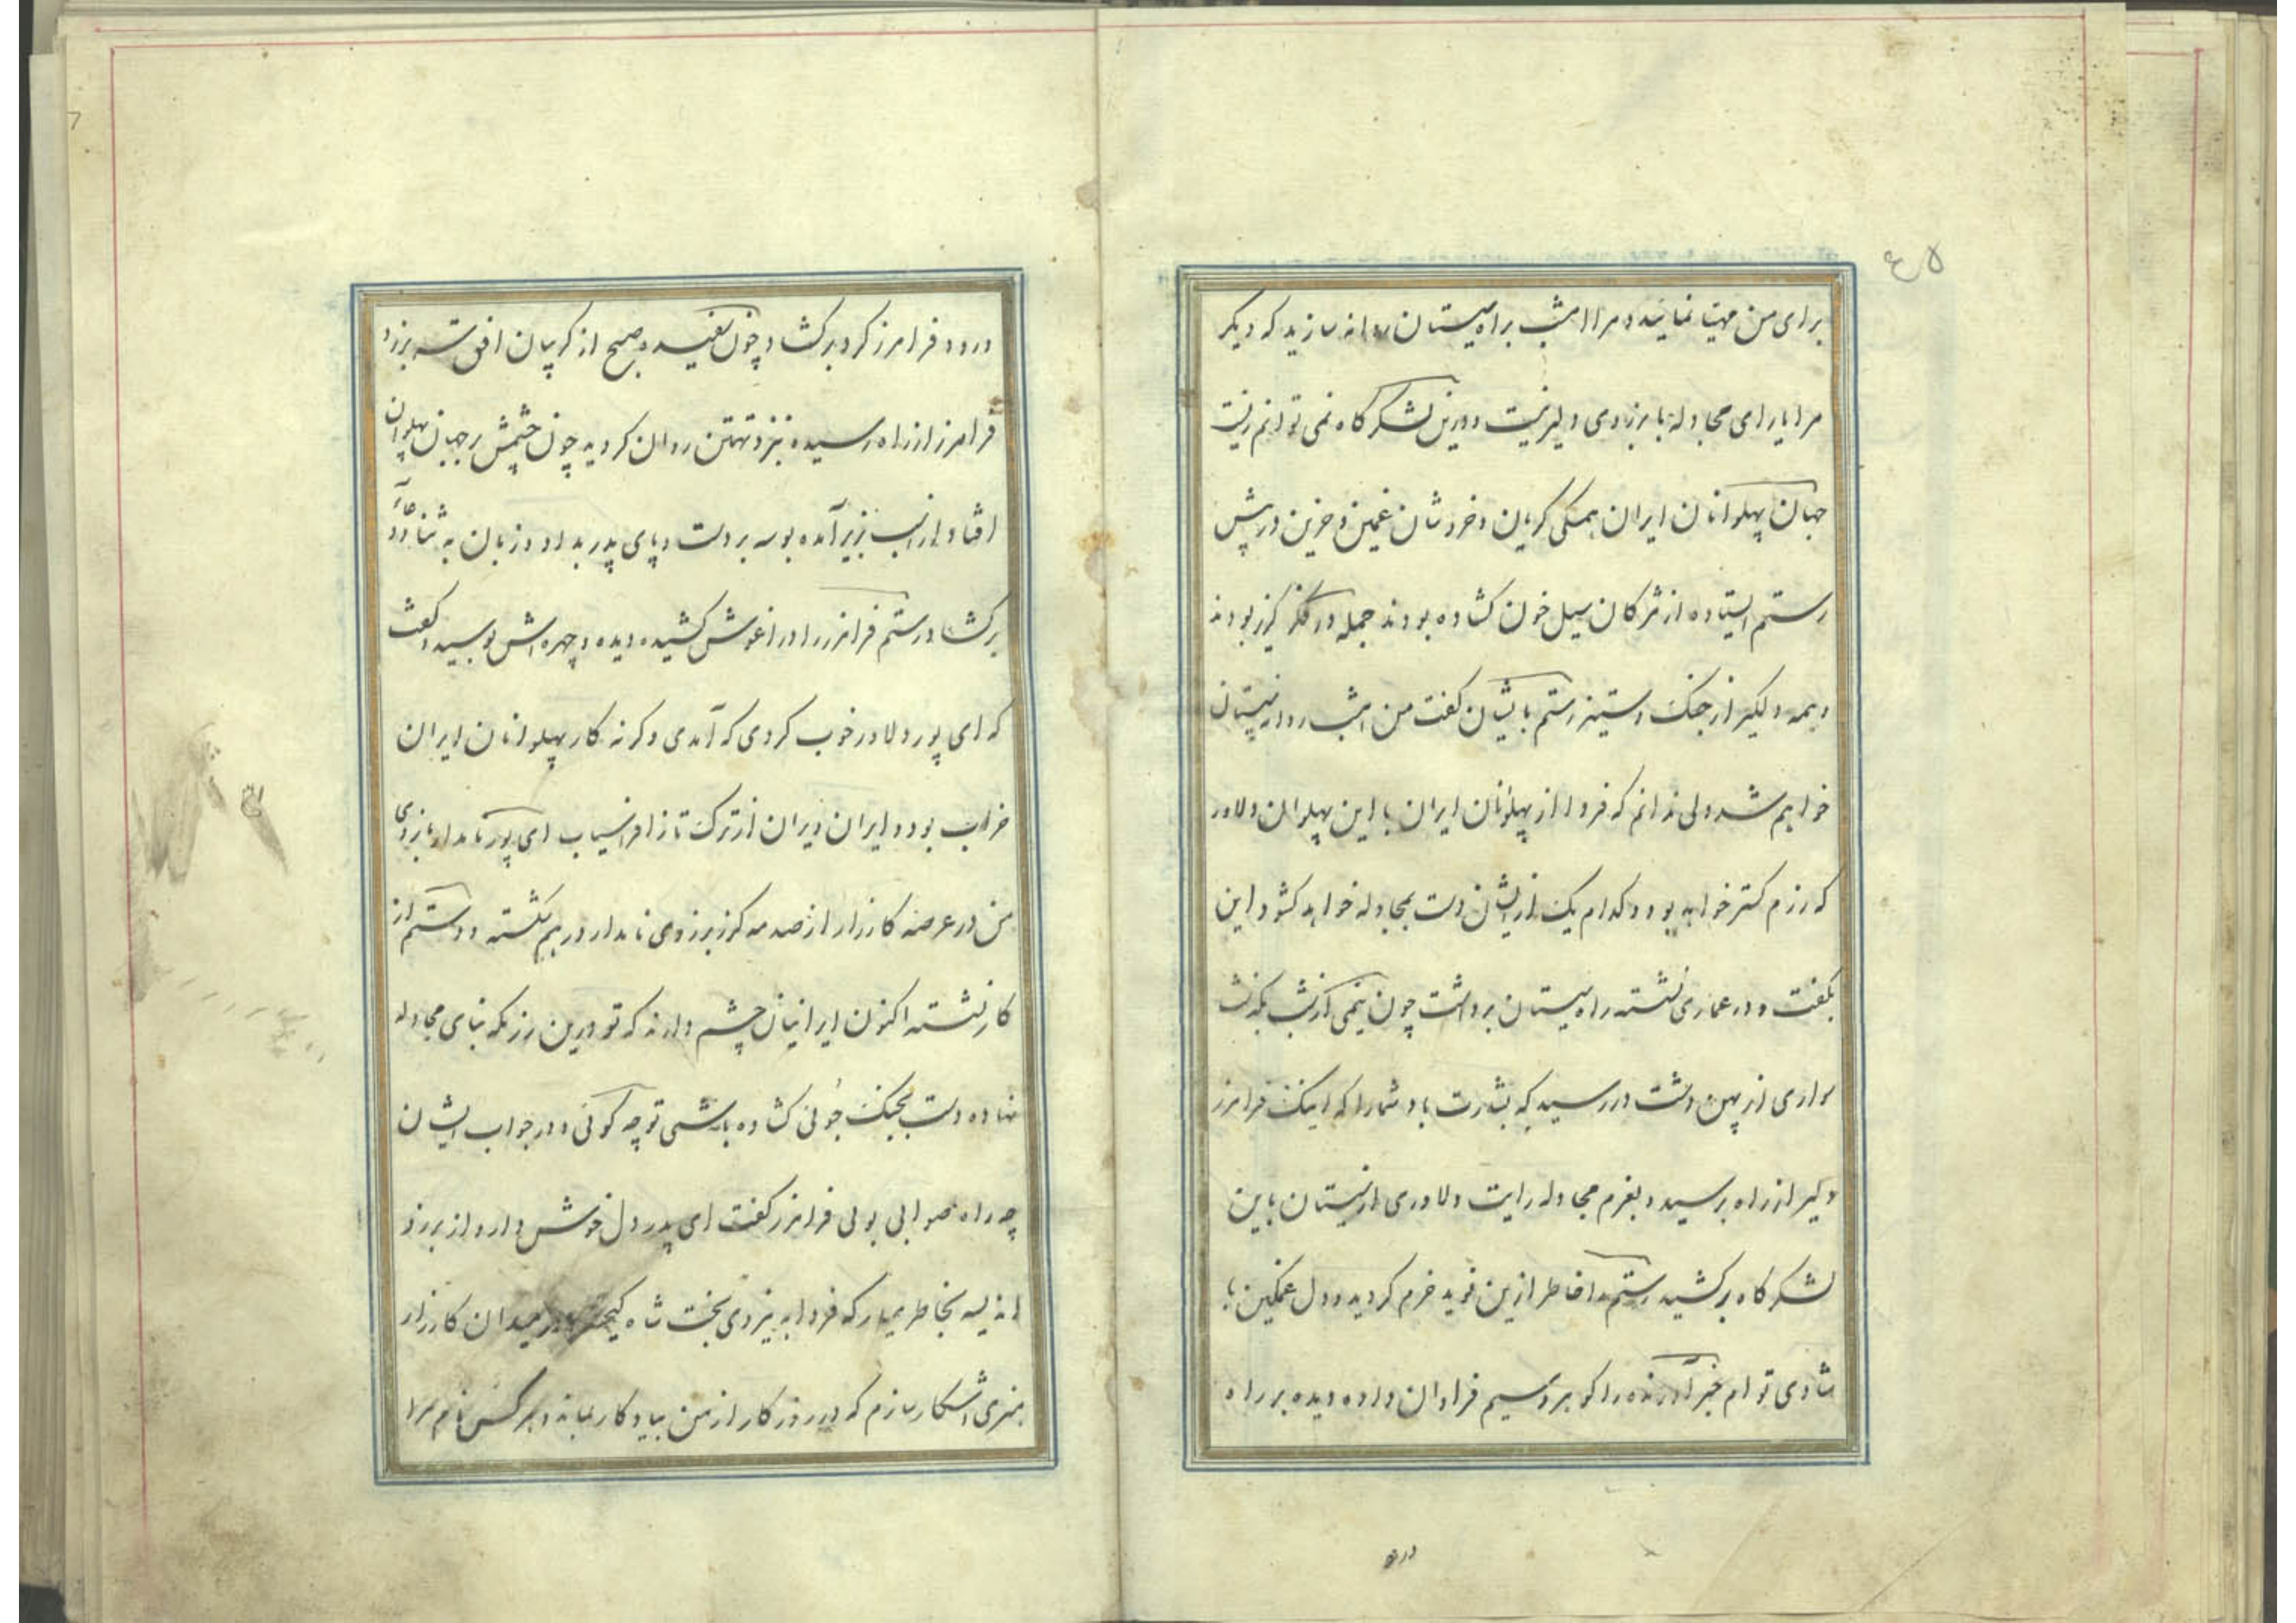 ۴۵
برای من مهیا نمائید و مرا امشب براه سیستان روانه سازید که دیگر
مرا یارای مجادله با برزوی دلیر نیست و درین لشکر گاه نمی توانم زیست
جهان پهلوانان ایران همکی کریان و خروشان غمین و حزین در پیش
رستم ایستاده از مژکان سیل خون کشاده بودند جمله در فکر کریز بودند
و همه دلکیر از جنک و ستیز رستم با یشان کفت من امشب روانه سیستان
خواهم شد ولی ندانم که فردا از پهلوانان ایران با این پهلوان دلاور
که رزم کستر خواهد بود و کدام یک از ایشان دست بمجادله خواهد کشود این
بکفت و در عماری نشسته راه سیستان برداشت چون نیمی از شب بکذشت
سواری از پهن دشت در رسید که بشارت باد شما را که اینک فرامرز
دلیر از راه برسید و بعزم مجادله رایت دلاوری از سیستان باین
لشکر کاه برکشید رستم را خاطر ازین نوید خرم کردید و دل غمکین با
شادی توام خبر آورنده را کوهر و سیم فراوان داده دیده بر راه
ورود
ورود فرامرز کرد بر کشاد چون سفیده صبح از کریبان افق سر بزد
فرامرز از راه رسیده نزد تهمتن روان کردید چون چشمش بر جهان پهلوان
افتاد از اسب بزیر آمده بوسه بر دست و پای پدر بداد و زبان به ثنا و دعا
برکشاد رستم فرامرز را در اغوش کشیده دیده و چهره اش بوسید و کفت
که ای پور دلاور خوب کردی که آمدی و کرنه کار پهلوانان ایران
خراب بود و ایران ویران از ترک تاز افراسیاب ای پور نامدار بازوی
من در عرصه کارزار از صدمه کرز برزوی نامدار در هم شکسته و دستم از
کار نشسته اکنون ایرانیان چشم دارند که تو درین رزمکه بنای مجادله
نهاده دست بجنک جوئی کشاده باشی تو چه کوئی و در جواب ایشان
چه راه صوابی پوئی فرامرز کفت ای پدر دل خوش دار و از برزو
اندیشه بخاطر میار که فردا به نیروی بخت شاه کیخسرو در میدان کارزار
هنری آشکار سازم که در روزکار از من بیادکار بماند و هر کس نام مرا